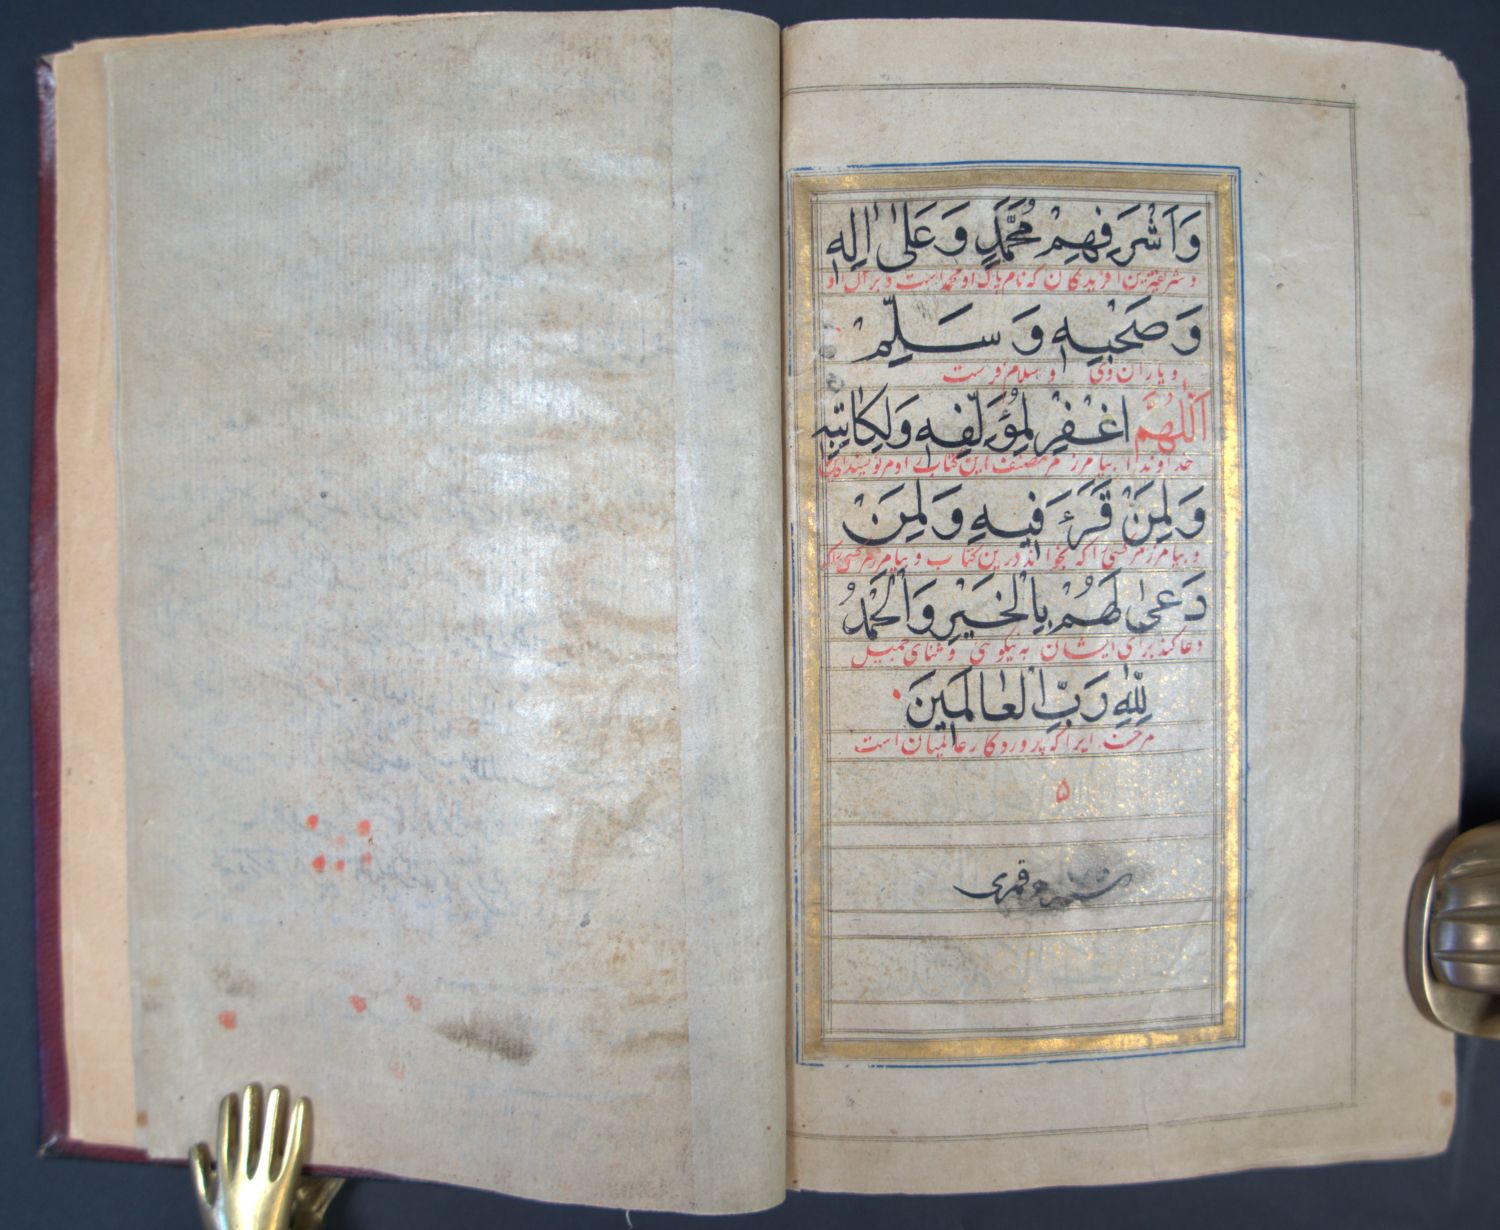 وَاَشْرَفِهِمْ مُحَمَّدٍ وَعَلىٰ اٰلِهٖ
و شریفترین آفریدکان که نام پاک او محمد است و بر آل او
وَصَحْبِهٖ وَسَلِّمْ
و یاران وی و سلام فرست
اَللّٰهُمَّ اغْفِرْ لِمُؤَلِّفِهٖ وَلِكَاتِبِهٖ
خداوندا بیامرز مر مصنف این کتاب را و مر نویسنده
وَلِمَنْ قَرَءَ فٖيهِ وَلِمَنْ
و بیامرز مر کسی را که بخواند درین کتاب و بیامرز مر کسی را که
دَعىٰ لَهُمْ بِالْخَيْرِ وَالْحَمْدُ
دعا کند برای ایشان به نیکوئی و ثنای جمیل
لِلّٰهِ رَبِّ الْعٰالَمٖينَ
مر خدایرا که پروردکار عالمیان است
۵
قمری